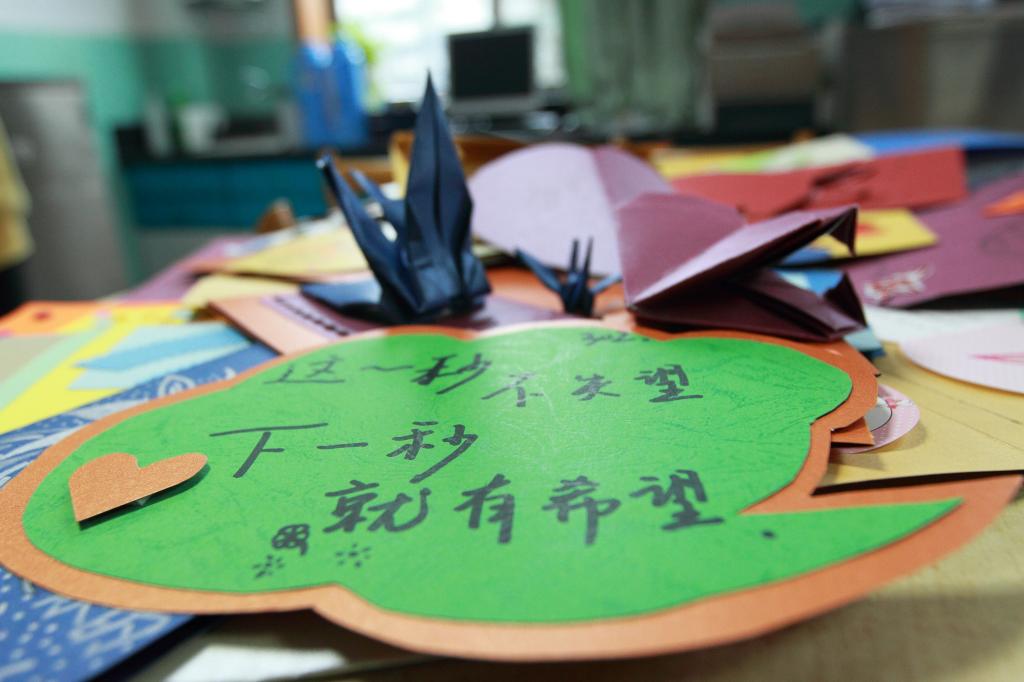 这一秒不失望
下一秒
就有希望.